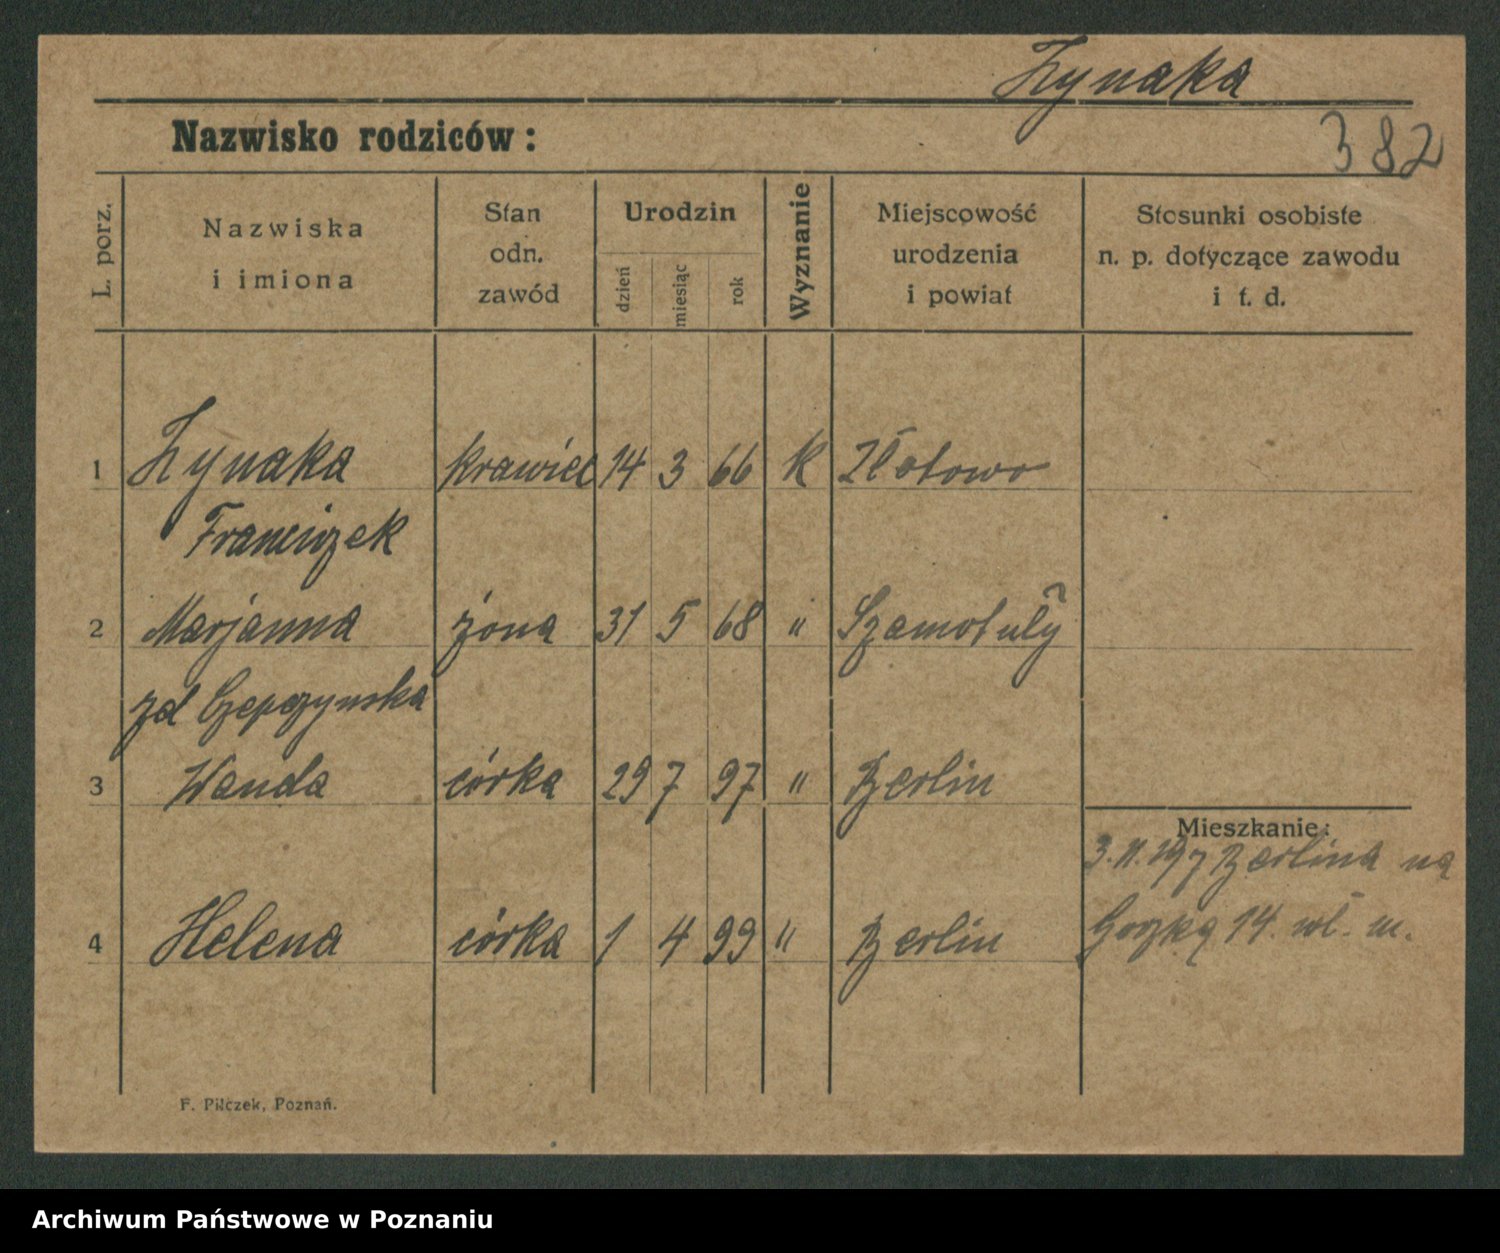 Zynaka
382
Nazwisko rodziców:
L. porz.
Nazwiska
i imiona
Stan
odn.
zawód
Urodzin
dzień
miesiąc
rok
Wyznanie
Miejscowość
urodzenia
i powiat
Stosunki osobiste
n. p. dotyczące zawodu
i t. d.
1 Zynaka krawiec 14 3 66 K Złotowo
Franciszek
2 Marjanna żona 31 5 68 " Szamotuły
zd Czepczynska
3 Wanda córka 29 7 97 " Berlin
Mieszkanie:
3. 11. 19 z Berlina na
4 Helena córka 1 4 99 " Berlin
14. wł. m.
F. Pilczek, Poznań.
Archiwum Państwowe w Poznaniu